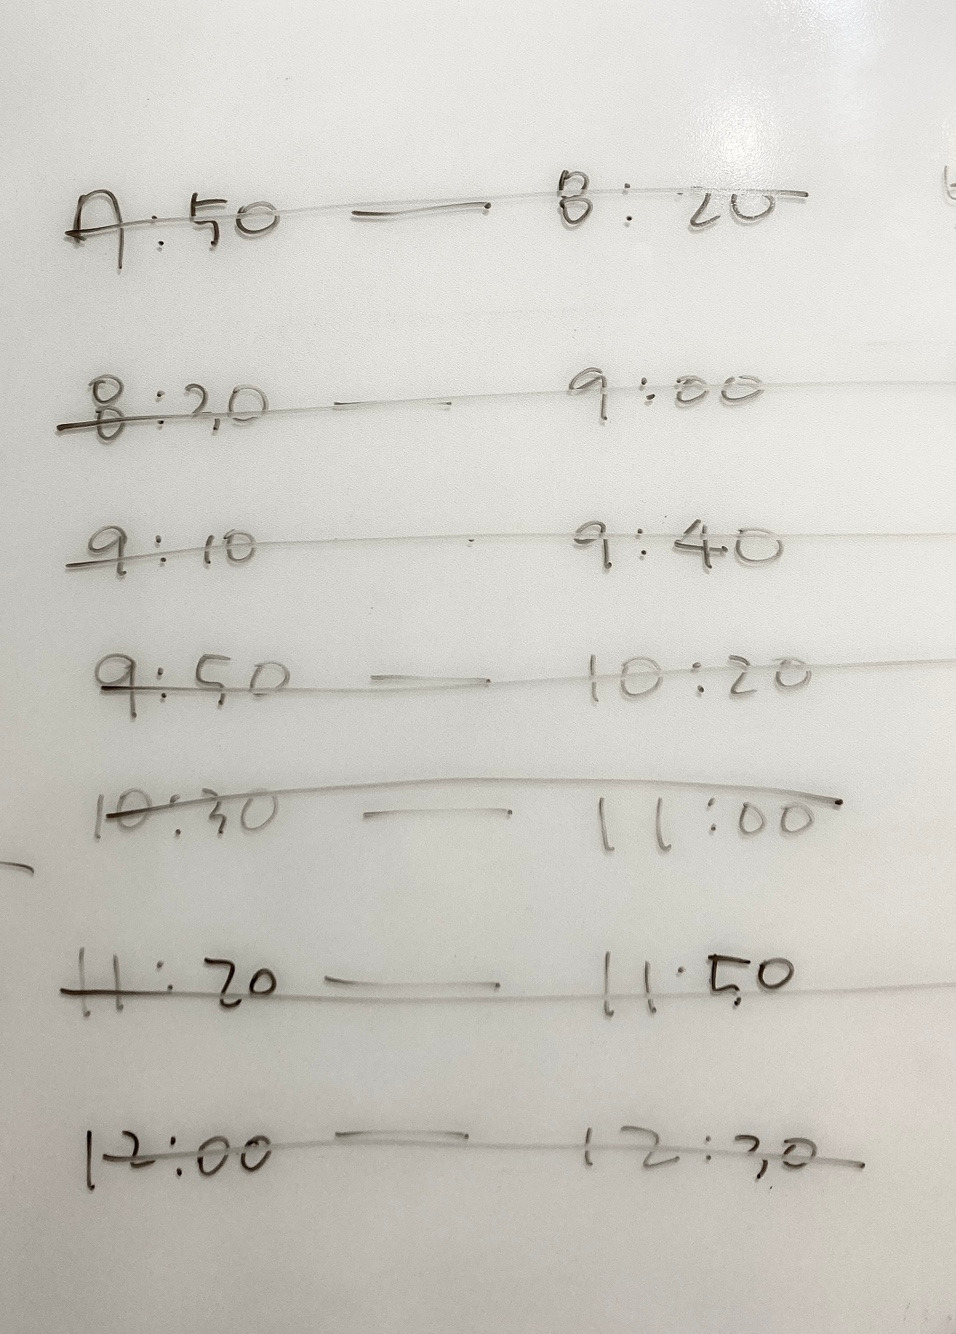 7:50 — 8:20
8:30 — 9:00
9:10 9:40
9:50 — 10:20
10:30 — 11:00
11:20 — 11:50
12:00 — 12:30